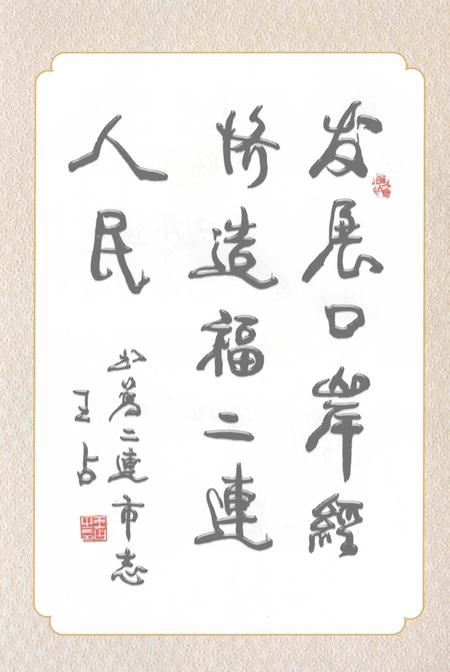 发展口岸經
济造福二連
人民
书為二連市志
王占